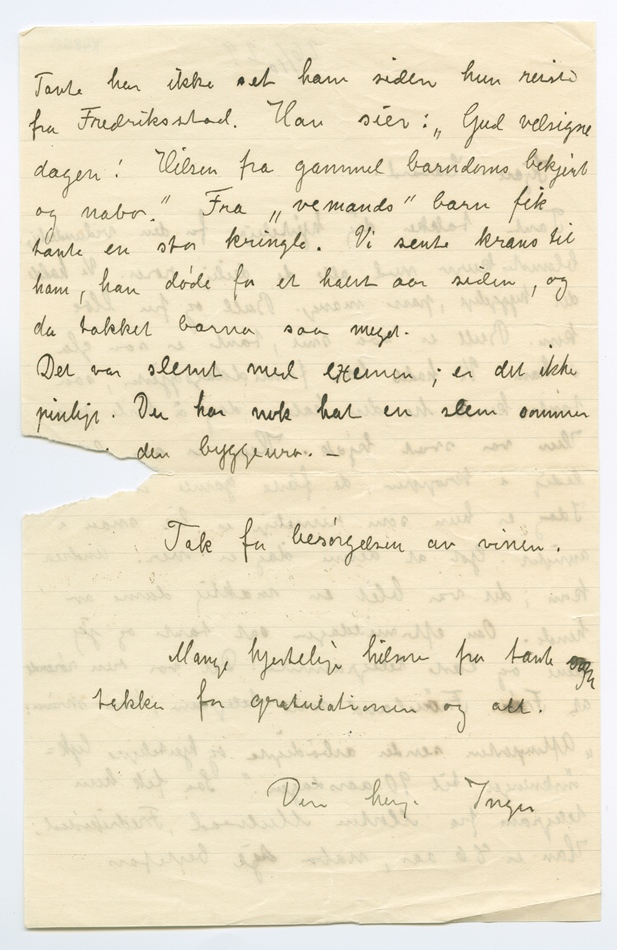 Tante har ikke set ham siden hun reiste
fra Fredriksstad. Han sier: „Gud velsigne
dagen! Hilsen fra gammel barndoms bekjent
og nabo." Fra „vemands" barn fik
tante en stor kringle. Vi sente krans til
ham, han døde for et halvt aar siden, og
da takket barna saa meget.
Det var slemt med exemen; er det ikke
pinligt. Du har nok hat en slem sommer
den byggeuro. —
Tak for besørgelsen av vinen.
Mange hjertelige hilsner fra tante og
takke for gratulationen og alt.
Din heng. Inger